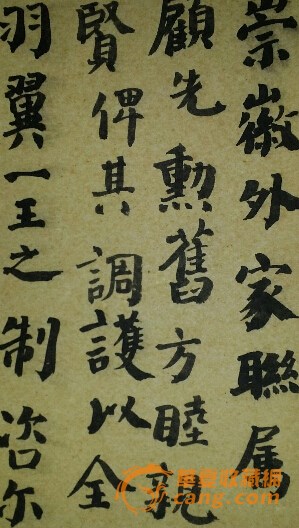 崇徽外家聯属
顧先勲舊方睦親
賢俾其調護以全
羽翼一王之制咨尔
華豫收藏網
cang.com